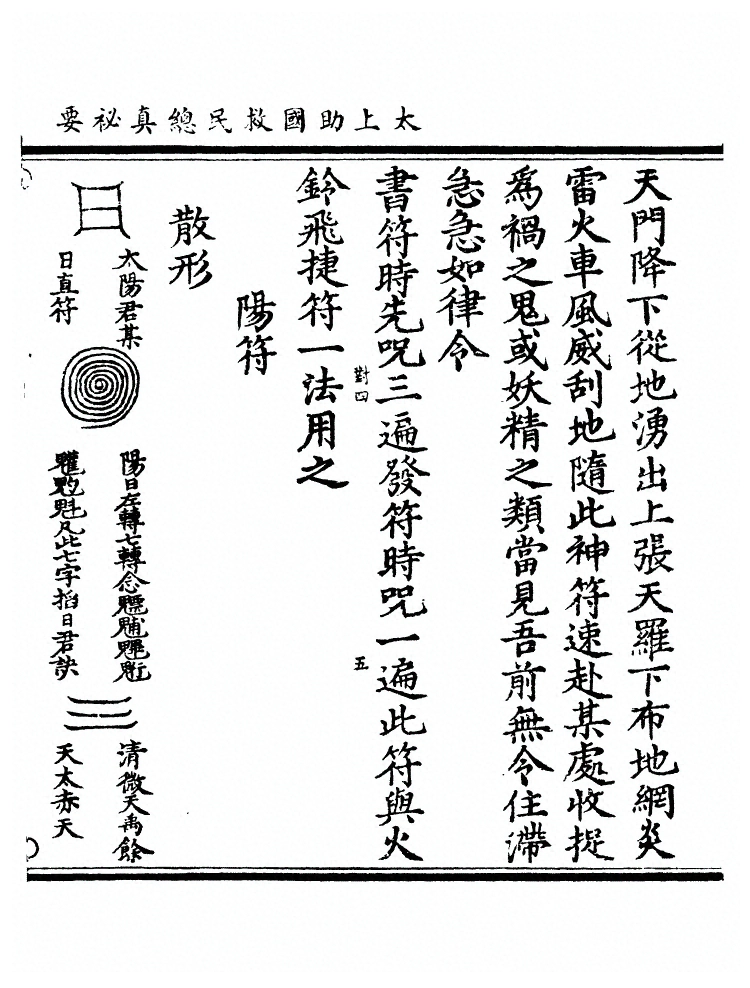 太上助國救民總真祕要
天門降下從地湧出上張天羅下布地網炎
雷火車風威刮地隨此神符速赴某處收捉
為禍之鬼或妖精之類當見吾前無令住滯
急急如律令
書符時先咒三遍發符時咒一遍此符與火
對四
五
鈴飛捷符一法用之
陽符
散形
日
太陽君某
日直符
陽日左轉七轉念
凡此七字掐日君訣
三
清微天禹餘
天太赤天